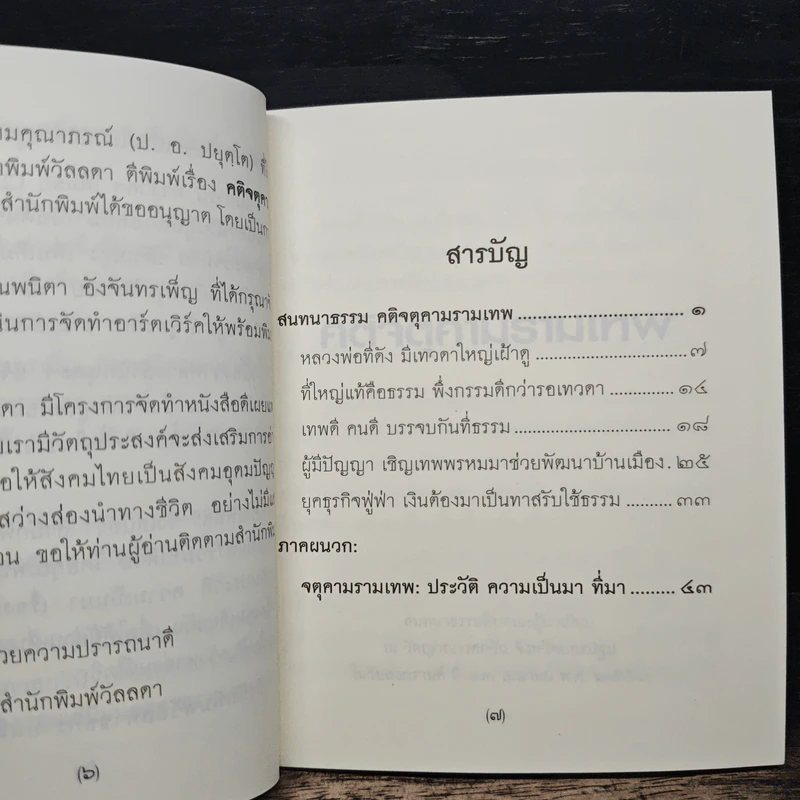 มคุณาภรณ์ (ป. อ. ปยุตฺโต) ที่
พิมพ์วัลลดา ตีพิมพ์เรื่อง คติจตุคา
สำนักพิมพ์ได้ขออนุญาต โดยเป็นก
นพนิตา อังจันทรเพ็ญ ที่ได้กรุณา
นการจัดทำอาร์ตเวิร์คให้พร้อมพิม
ดา มีโครงการจัดทำหนังสือดีเผยแ
ยเรามีวัตถุประสงค์จะส่งเสริมการ
อให้สังคมไทยเป็นสังคมอุดมปัญญ
สว่างส่องนำทางชีวิต อย่างไม่มี
อน ขอให้ท่านผู้อ่านติดตามสำนักพิ
วยความปรารถนาดี
สำนักพิมพ์วัลลดา
(๖)
สารบัญ
สนทนาธรรม คติจตุคามรามเทพ .................................. ๑
หลวงพ่อที่ดัง มีเทวดาใหญ่เฝ้าดู ...............................๗
ที่ใหญ่แท้คือธรรม พึ่งกรรมดีกว่ารอเทวดา .............. ๑๔
เทพดี คนดี บรรจบกันที่ธรรม ................................. ๑๘
ผู้มีปัญญา เชิญเทพพรหมมาช่วยพัฒนาบ้านเมือง . ๒๕
ยุคธุรกิจฟู่ฟ่า เงินต้องมาเป็นทาสรับใช้ธรรม ........... ๓๓
ภาคผนวก:
จตุคามรามเทพ: ประวัติ ความเป็นมา ที่มา ......... ๔๓
(๗)